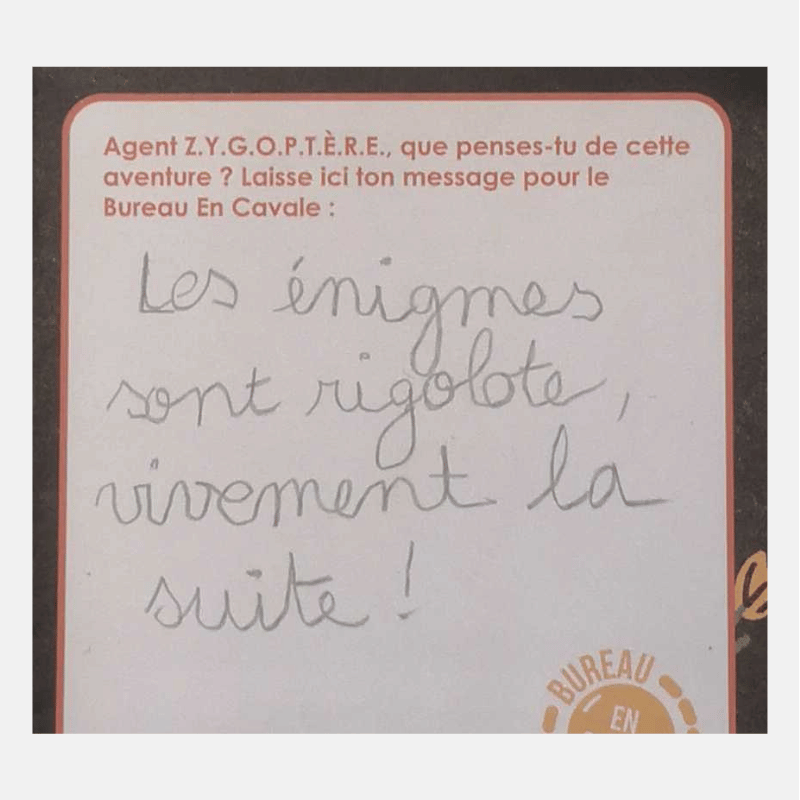 Agent Z.Y.G.O.P.T.È.R.E., que penses-tu de cette
aventure ? Laisse ici ton message pour le
Bureau En Cavale :
Les énigmes
sont rigolote,
vivement la
suite !
BUREAU
EN